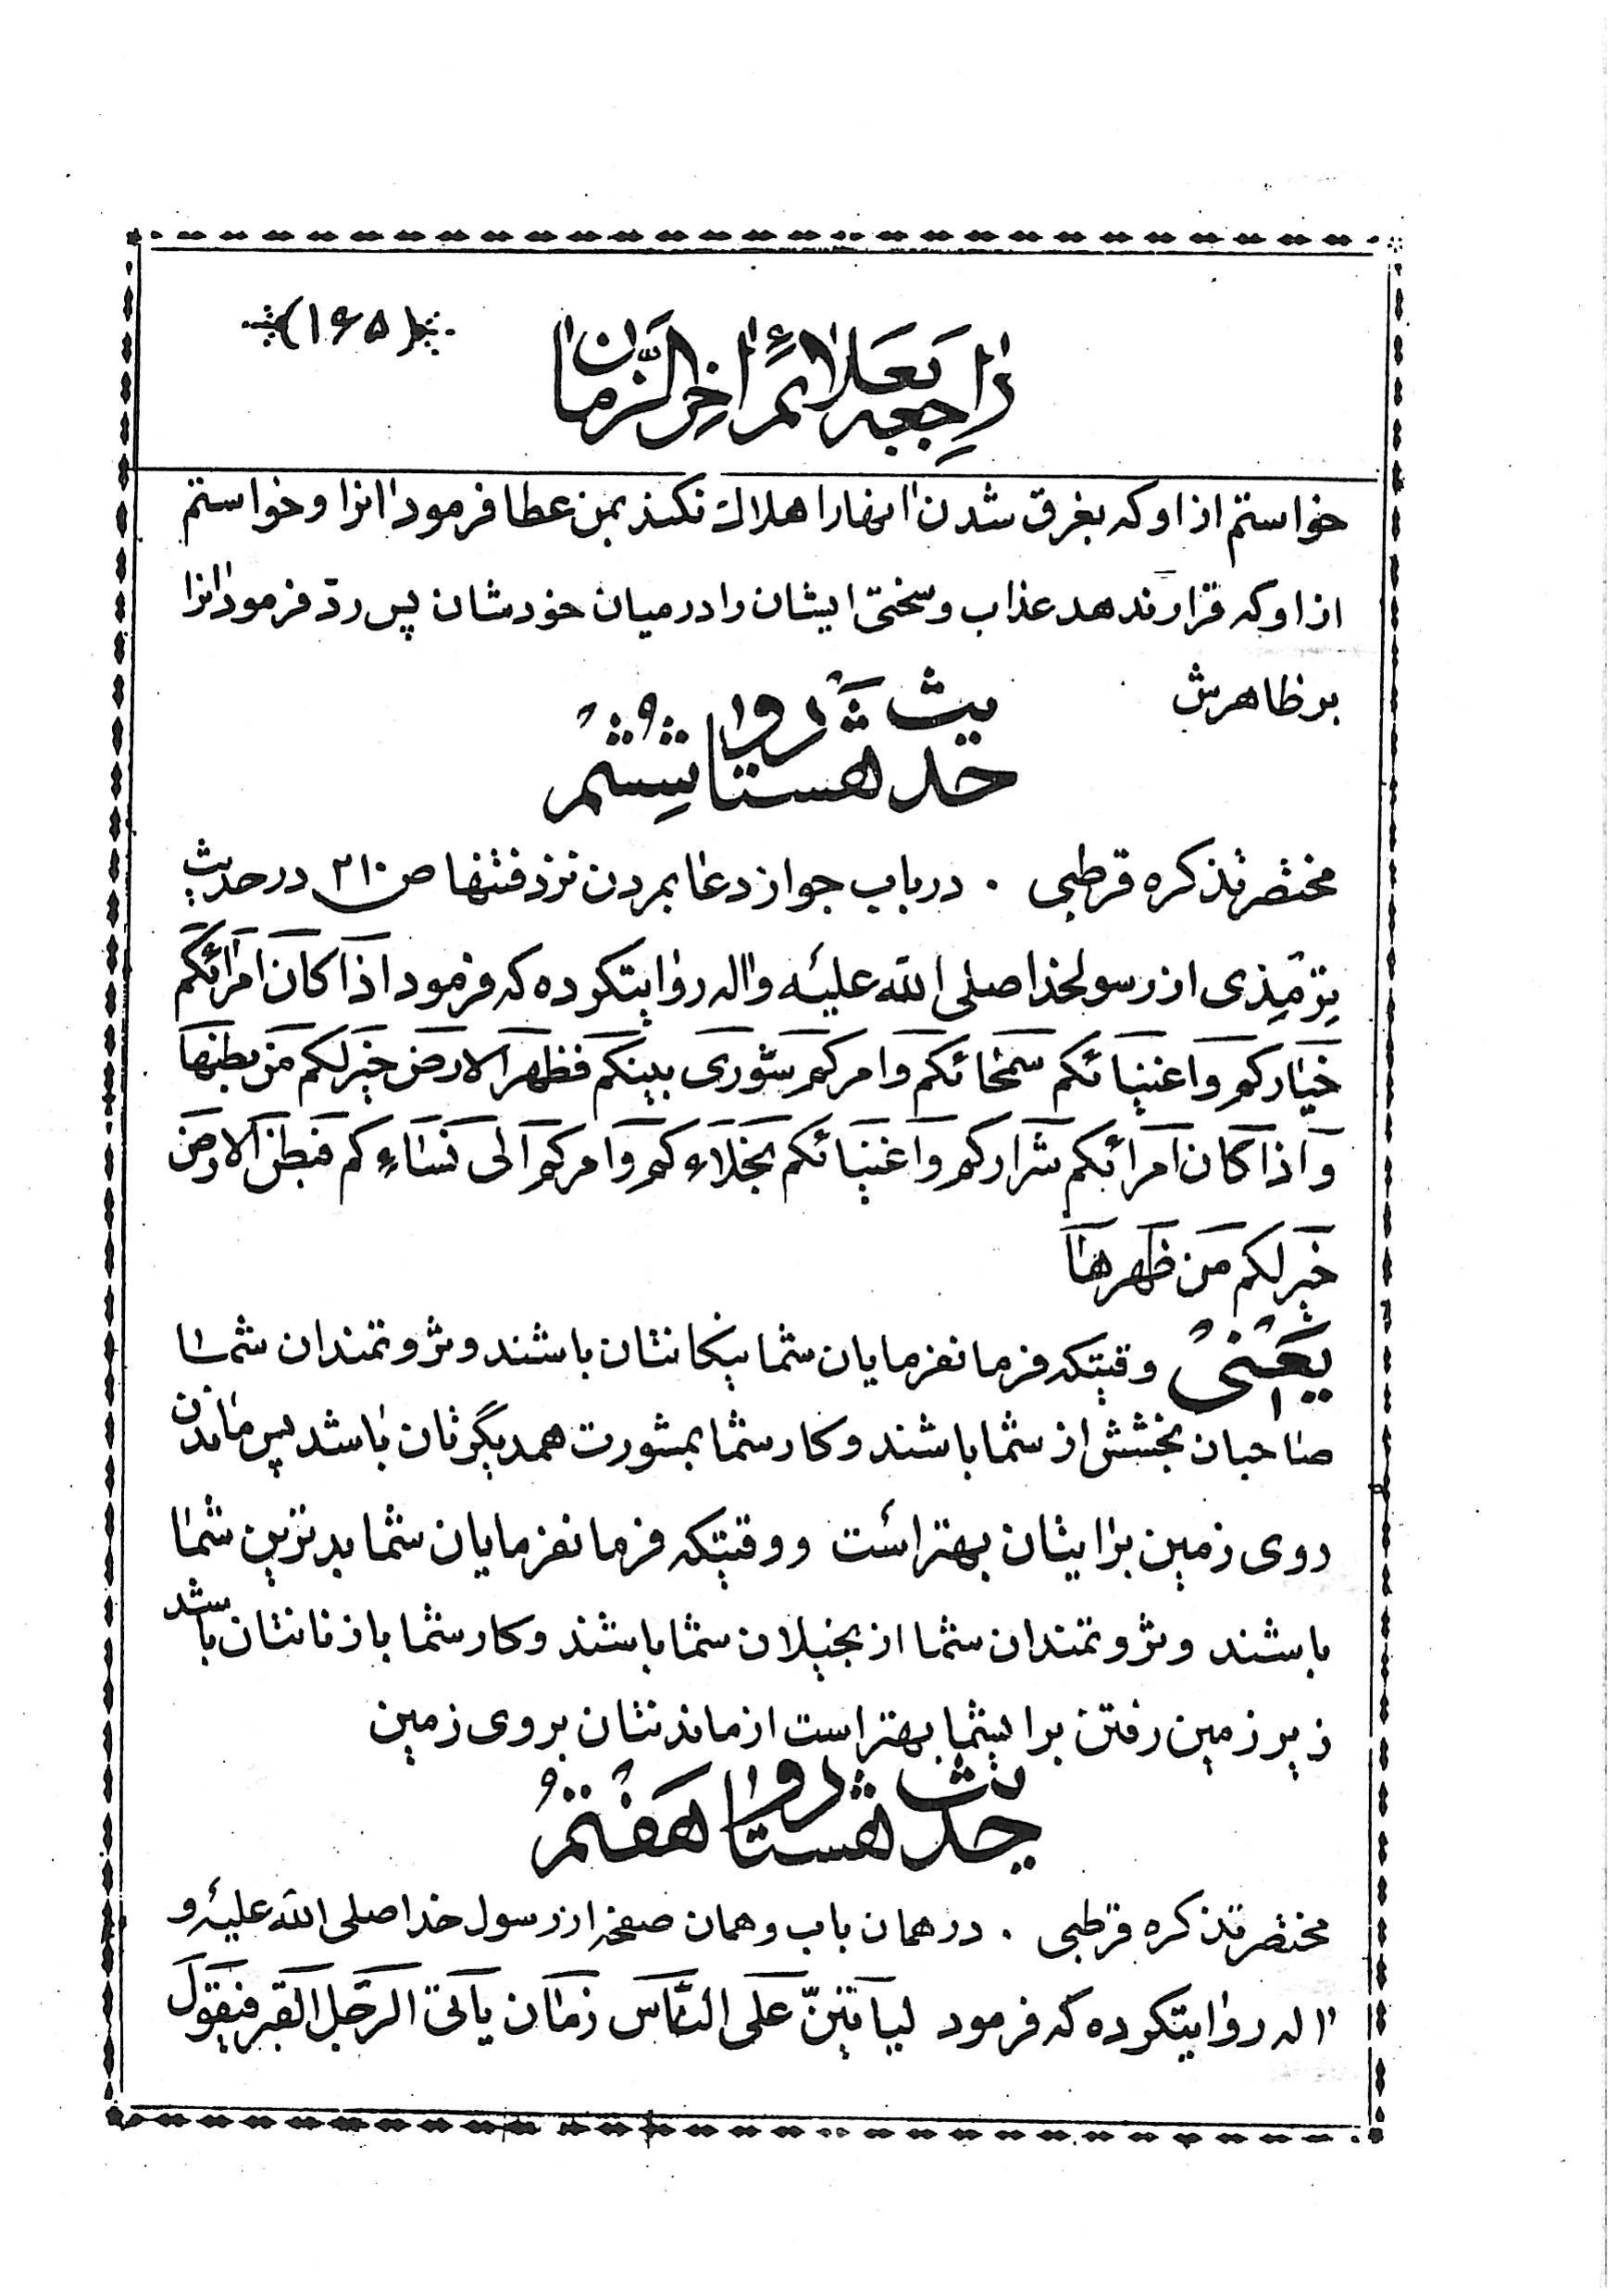 (۱۶۵)
راجعه بعلائم اخر الزمان
خواستم از او که بغرق شدن انها را هلاک نکند بمن عطا فرمود انرا و خواستم
از او که قرار ندهد عذاب و سختی ایشان را در میان خودشان پس ردّ فرمود انرا
بر ظاهرش
حدیث هشتاد و ششم
مختصر تذکره قرطبی . در باب جواز دعا بمردن نزد فتنها ص ۲۱۰ در حدیث
تِرْمِذی از رسولخدا صلی الله علیه و اله روایتکرده که فرمود اذا کان امرائکم
خیارکم و اغنیائکم سمحائکم و امرکم شوری بینکم فظهر الارض خیر لکم من بطنها
و اذا کان امرائکم شرارکم و اغنیائکم بخلاءکم و امرکم الی نساءکم فبطن الارض
خیر لکم من ظهرها
یعنی وقتیکه فرمانفرمایان شما نیکانتان باشند و ثروتمندان شما
صاحبان بخشش از شما باشند و کار شما بمشورت همدیگرتان باشد پس ماندن
روی زمین برایتان بهتر است و وقتیکه فرمانفرمایان شما بدترین شما
باشند و ثروتمندان شما از بخیلان شما باشند و کار شما با زنانتان باشد
زیر زمین رفتن برایشما بهتر است از ماندنتان بروی زمین
حدیث هشتاد و هفتم
مختصر تذکره قرطبی . در همان باب و همان صفحه از رسول خدا صلی الله علیه و
اله روایتکرده که فرمود لیاتینّ علی الناس زمان یاتی الرّجل القبر فیقول